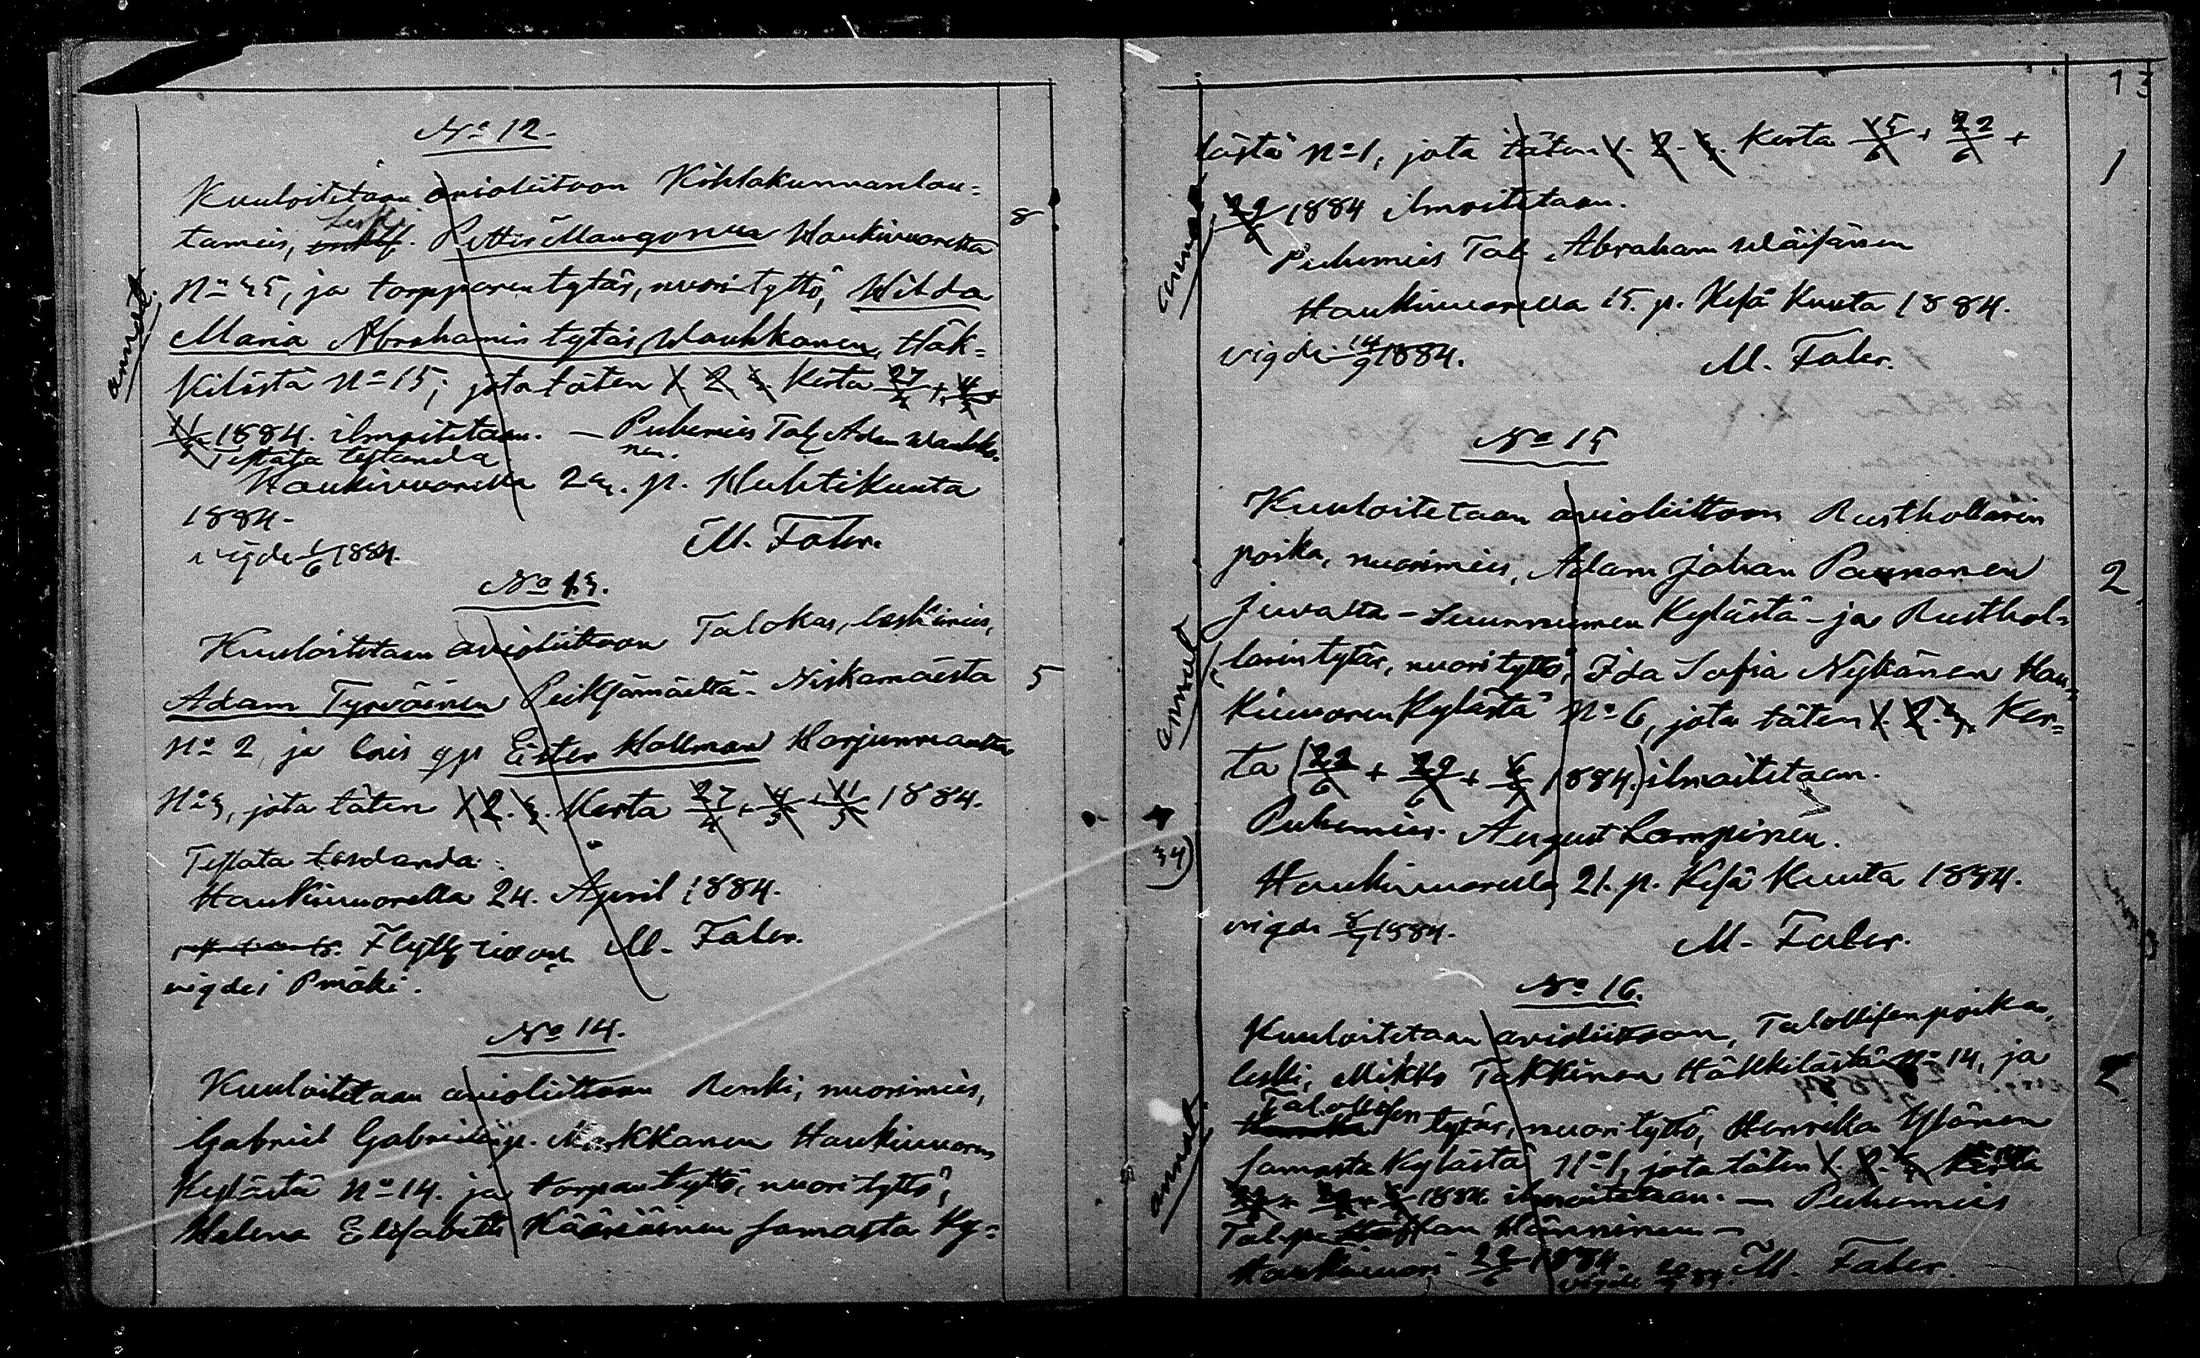 No 12.
Kuuloitetaan avioliittoon Kihlakunnanlau=
tamies, Leski. Petter Manganen Haukivuorelta
No 45, ja torpparen tytär, nuori tyttö, Wilda
Maria Abrahamin tytär, Wauhkonen, Häk=
kilästä No 15; jota täten 1. 2. 3. Kerta 27/4 + 4/5 +
11/5 1884. ilmoitetaan. — Puhemies Tal. Adam Wauhko-
nen.
testata testanda
Haukivuorella 24. p. Huhtikuuta
1884.
M. Faler.
vigde 1/6 1884.
No 13.
Kuuloitetaan avioliittoon Talokas, leskimies,
Adam Tyrväinen Pieksämäeltä - Niskamäestä
No 2, ja ex gp Ester Hallman Harjunmaalta
No 3, jota täten 1. 2. 3. Kerta 27/4 + 4/5 + 11/5 1884.
Testata testanda.
Haukivuorella 24. April 1884.
Flytt M. Faler.
vigdes Pmäki.
No 14.
Kuuloitetaan avioliittoon Renki, nuorimies,
Gabriel Gabrielinp. Markkanen Haukivuoren
Kylästä No 14. ja torpan tyttö, nuori tyttö,
Helena Elisabeth Kääriäinen samasta Ky=
annet.
8
5
13
lästä No 1, jota täten 1. 2. 3. Kerta 15/6 + 22/6 +
29/6 1884 ilmoitetaan.
Puhemies Tal. Abraham Wäisänen
Haukivuorella 15. p. Kesä Kuuta 1884.
vigde 14/9 1884. M. Faler.
1
No 15
Kuuloitetaan avioliittoon Rusthollarin
poika, nuorimies, Adam Johan Paunonen
Juvalta - Kylästä - ja Rusthol=
larin tytär, nuori tyttö, Ida Sofia Nykänen Hau=
kivuoren Kylästä No 6, jota täten 1. 2. 3. Ker=
ta (22/6 + 29/6 + 6/7 1884.) ilmoitetaan.
Puhemies. August Lampinen.
Haukivuorella 21. p. Kesä Kuuta 1884.
vigde 1884.
M. Faler.
2
No 16.
Kuuloitetaan avioliittoon, Talollisen poika,
leski, Mikko Takkinen Häkkilästä No 14, ja
Talollisen tytär, nuori tyttö, Henrika Ylönen
samasta Kylästä No 1, jota täten 1. 2. 3. Kerta
1884. ilmoitetaan. — Puhemies
Tal. p. Hänninen —
Haukivuori 22/6 1884. M. Faler.
vigde
2
annet
annet
34)
annet